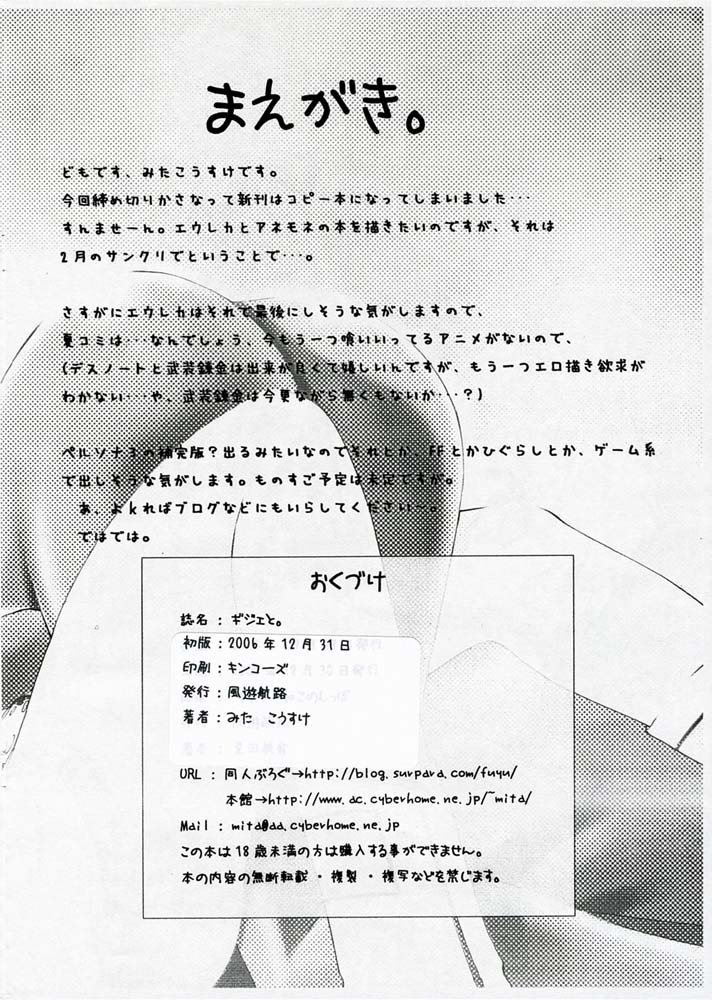 まえがき。
どもです、みたこうすけです。
今回締め切りかさなって新刊はコピー本になってしまいました・・・
すんませーん。エウレカとアネモネの本を描きたいのですが、それは
2月のサンクリでということで・・・。
さすがにエウレカはそれで最後にしそうな気がしますので、
夏コミは・・・なんでしょう、今もう一つ喰いいってるアニメがないので、
(デスノートと武装錬金は出来が良くて嬉しいんですが、もう一つエロ描き欲求が
わかない・・・や、武装錬金は今更ながら無くもないか・・・?)
ペルソナ3の補完版?出るみたいなのでそれとか、FFとかひぐらしとか、ゲーム系
で出しそうな気がします。ものすご予定は未定ですが。
あ、よkればブログなどにもいらしてください〜。
ではでは。
おくづけ
誌名 : ギジェと。
初版 : 2006年12月31日
印刷 : キンコーズ
発行 : 風遊航路
著者 : みた こうすけ
URL : 同人ぶろぐ→http://blog.surpara.com/fuyu/
本館→http://www.ac.cyberhome.ne.jp/~mita/
Mail : mita@aa.cyberhome.ne.jp
この本は18歳未満の方は購入する事ができません。
本の内容の無断転載・複製・複写などを禁じます。